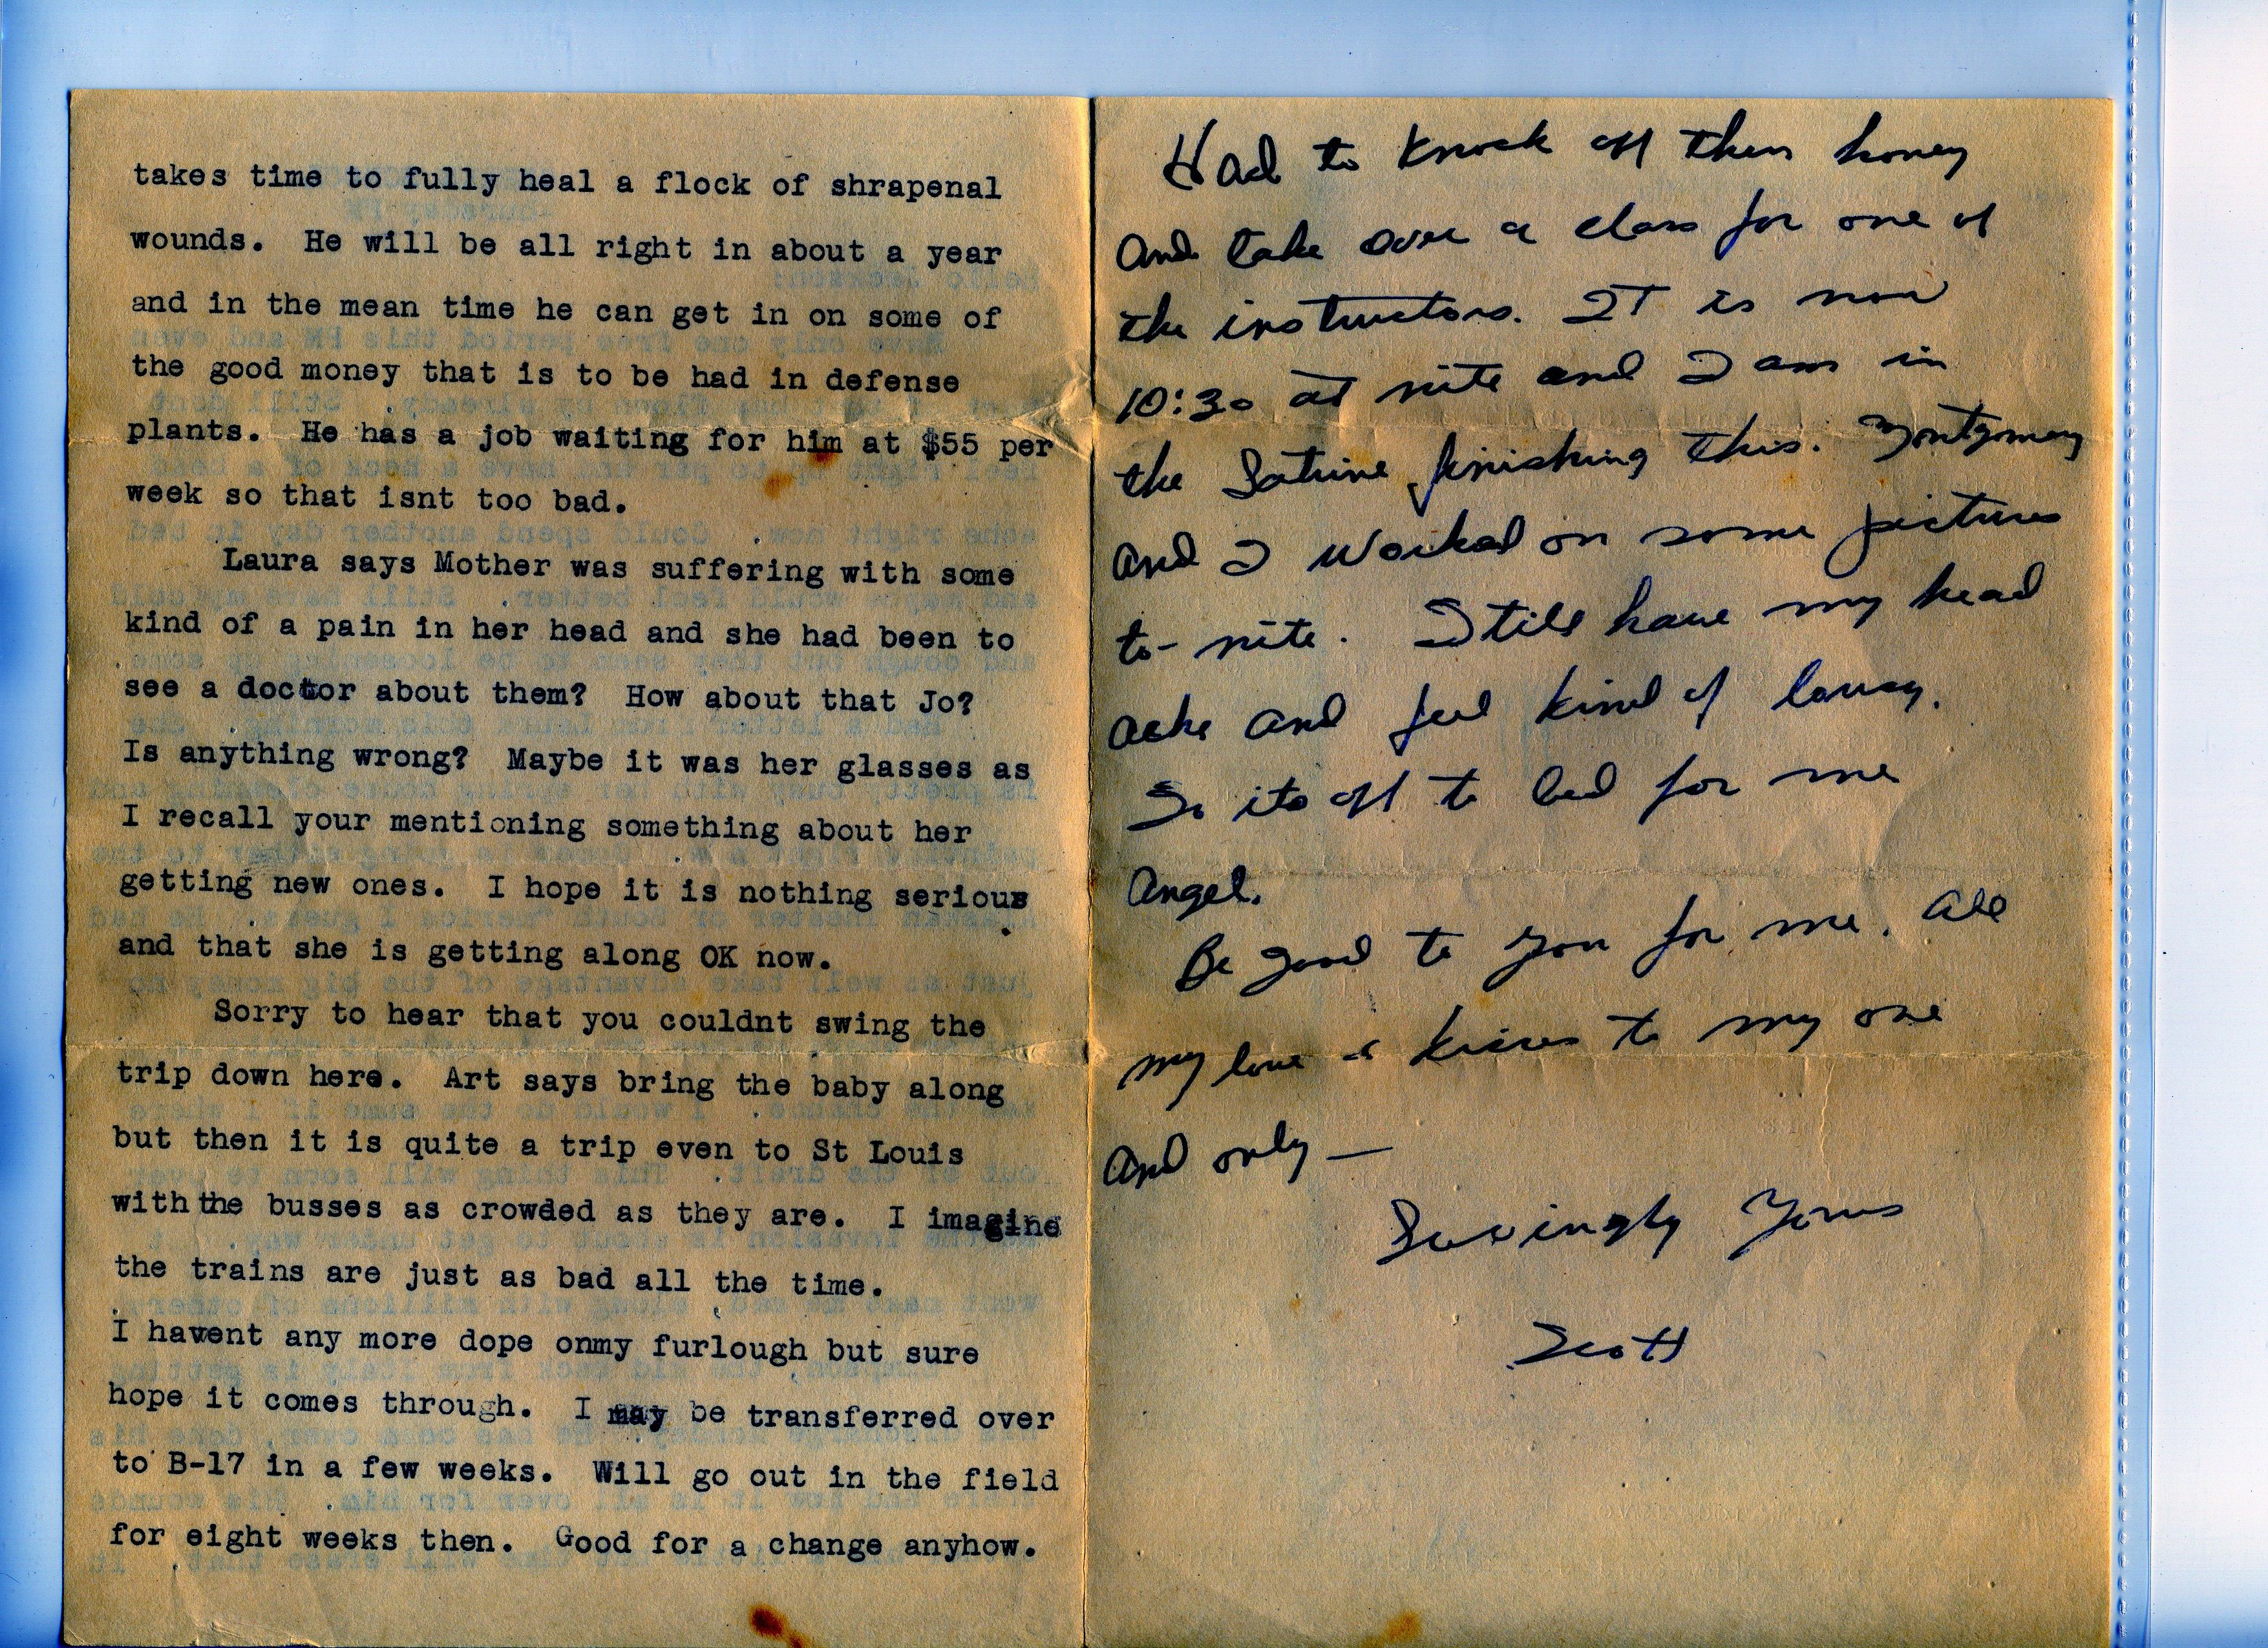 takes time to fully heal a flock of shrapenal
wounds. He will be all right in about a year
and in the mean time he can get in on some of
the good money that is to be had in defense
plants. He has a job waiting for him at $55 per
week so that isnt too bad.
Laura says Mother was suffering with some
kind of a pain in her head and she had been to
see a doctor about them? How about that Jo?
Is anything wrong? Maybe it was her glasses as
I recall your mentioning something about her
getting new ones. I hope it is nothing serious
and that she is getting along OK now.
Sorry to hear that you couldnt swing the
trip down here. Art says bring the baby along
but then it is quite a trip even to St Louis
with the busses as crowded as they are. I imagine
the trains are just as bad all the time.
I havent any more dope onmy furlough but sure
hope it comes through. I may be transferred over
to B-17 in a few weeks. Will go out in the field
for eight weeks then. Good for a change anyhow.
Had to knock off then honey
and take over a class for one of
the instructors. IT is now
10:30 at nite and I am in
the Latrine finishing this. Montgomery
and I worked on some pictures
to-nite. Still have my head
ache and feel kind of lousy.
So its off to bed for me
Angel.
Be good to you for me. All
my love & kisses to my one
and only —
Lovingly Yours
Scott